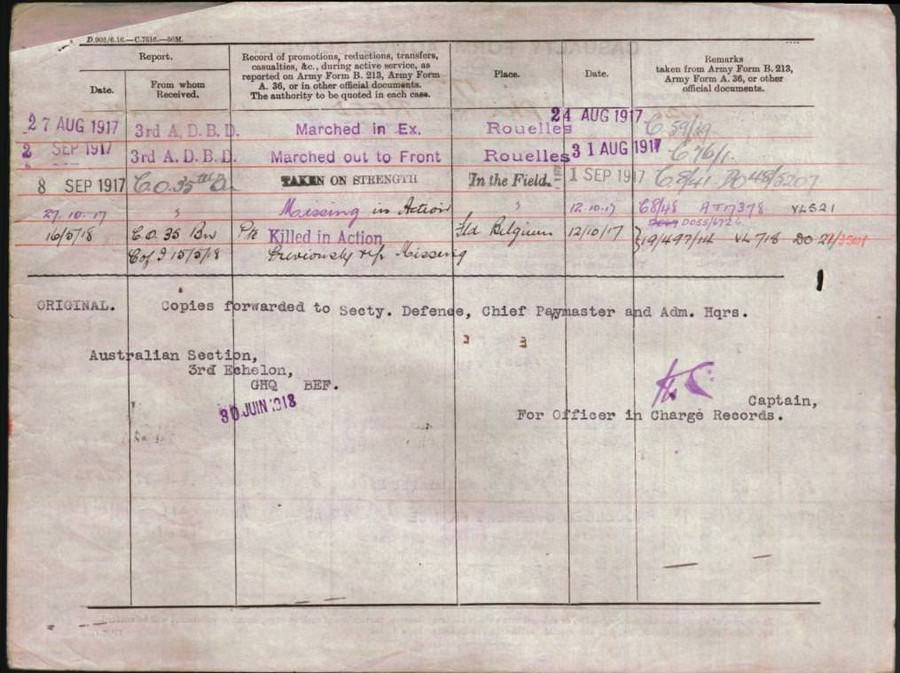 D.901/6.16.—C.7516.—50M.
Report.
Record of promotions, reductions, transfers,
casualties, &c., during active service, as
reported on Army Form B. 213, Army Form
A. 36, or in other official documents.
The authority to be quoted in each case.
Place.
Date.
Remarks
taken from Army Form B. 213,
Army Form A. 36, or other
official documents.
Date.
From whom
Received.
27 AUG 1917 3rd A.D.B.D. Marched in Ex. Rouelles 24 AUG 1917 C.59/39
2 SEP 1917 3rd A.D.B.D. Marched out to Front Rouelles 31 AUG 1917 C 76/1.
8 SEP 1917 C.O. 35th Bn TAKEN ON STRENGTH In the Field. 1 SEP 1917 C8/41 DO48/3207
27.10.17 " Missing in Action " 12.10.17 C8/48 AT17378 VL521
DO55/6726
16/5/18 C.O. 35 Bn Pte Killed in Action Fld Belgium 12/10/17 19/497/14 VL 718 DO 21/3501
Cof I 15/5/18 Previously rep Missing
ORIGINAL. Copies forwarded to Secty. Defence, Chief Paymaster and Adm. Hqrs.
Australian Section,
3rd Echelon,
GHQ BEF.
30 JUIN 1918
Captain,
For Officer in Charge Records.